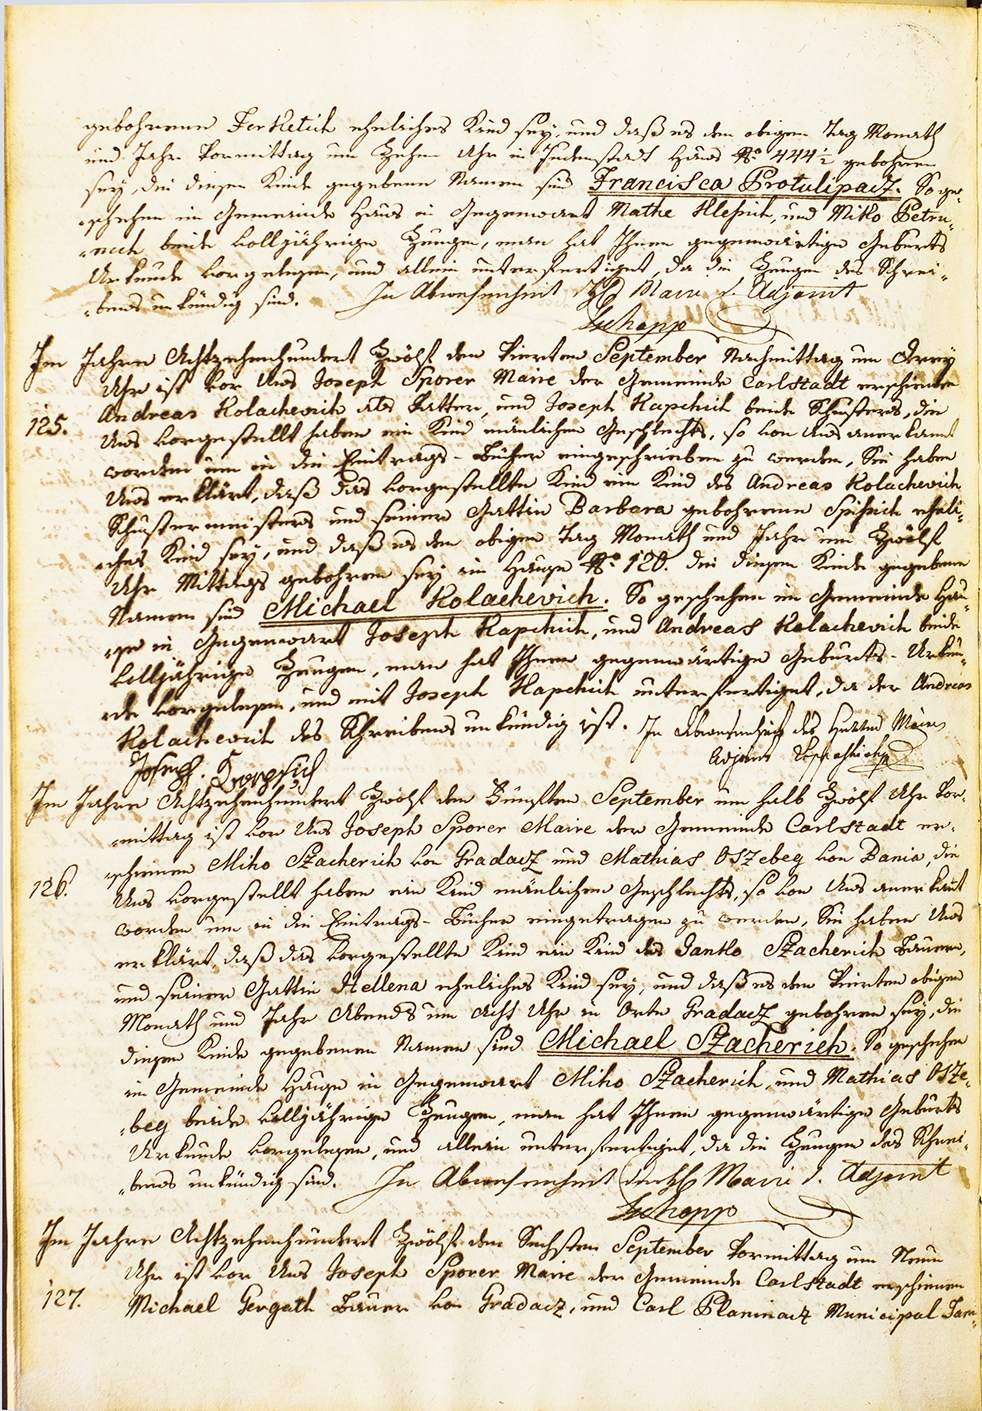 gebohrene Ferketich eheliches Kind sey, und daß es den obigen Tag Monath
und Jahr Vormittag um Zehen Uhr in Judenstadt Haus No. 444½ gebohren
sey, die diesem Kinde gegebene Namen sind Francisca Protulipacz. So ge-
schehen im Gemeinde Haus in Gegenwart Mathe Illesich, und Miko Petru-
nich beide volljährige Zeugen, man hat Ihnen gegenwärtige Geburts
Urkunde vorgelesen, und allein unterfertiget, da die Zeugen des Schrei-
bens unkündig sind. In Abwesenheit Maire d. Adjoint
Tschopp
Im Jahre Achtzehenhundert Zwölf den Vierten September Nachmittag um Drey
Uhr ist vor Uns Joseph Sporer Maire der Gemeinde Carlstadt erschienen
125. Andreas Kolachevich als Vatter, und Joseph Kapchich beide Schusters, die
Uns vorgestellt haben ein Kind mänlichen Geschlechts, so von Uns anerkannt
worden um in die Eintrags-Bücher eingeschrieben zu werden, Sie haben
Uns erklärt, daß das vorgestellte Kind ein Kind des Andreas Kolachevich
Schustermeisters und seiner Gattin Barbara gebohrene Spissich eheli-
ches Kind sey, und daß es den obigen Tag Monath und Jahr um Zwölf
Uhr Mittags gebohren sey im Hause No. 120. die diesem Kinde gegebene
Namen sind Michael Kolachevich. So geschehen im Gemeinde Hau-
se in Gegenwart Joseph Kapchich, und Andreas Kolachevich beide
volljährige Zeugen, man hat Ihnen gegenwärtige Geburts-Urkun-
de vorgelesen, und mit Joseph Kapchich unterfertiget, da der Andreas
Kolachevich des Schreibens unkündig ist. In Abwesenheit des Herrn Maire
Joseph. Adjoint
Im Jahre Achtzehenhundert Zwölf den Fünften September um halb Zwölf Uhr Vor-
mittag ist vor Uns Joseph Sporer Maire der Gemeinde Carlstadt er-
schienen Miho Szacherich von Gradacz und Mathias Oszebeg von Dania, die
126. Uns vorgestellt haben ein Kind mänlichen Geschlechts, so von Uns anerkannt
worden um in die Eintrags-Bücher eingetragen zu werden, Sie haben Uns
erklärt, daß das vorgestellte Kind ein Kind des Janko Szacherich Bauern,
und seiner Gattin Hellena eheliches Kind sey, und daß es den Vierten obigen
Monath und Jahr Abends um Acht Uhr in Orte Gradacz gebohren sey, die
diesem Kinde gegebenen Namen sind Michael Szacherich. So geschehen
im Gemeinde Hause in Gegenwart Miho Szacherich, und Mathias Osze-
beg beide volljährige Zeugen, man hat Ihnen gegenwärtige Geburts
Urkunde vorgelesen, und allein unterfertiget, da die Zeugen des Schrei-
bens unkündig sind. In Abwesenheit Maire d. Adjoint
Tschopp
Im Jahre Achtzehenhundert Zwölf den Sechsten September Vormittag um Neun
Uhr ist vor Uns Joseph Sporer Maire der Gemeinde Carlstadt erschienen
127. Michael Gergath Bauer von Gradacz, und Carl Planinacz Municipal Tam-